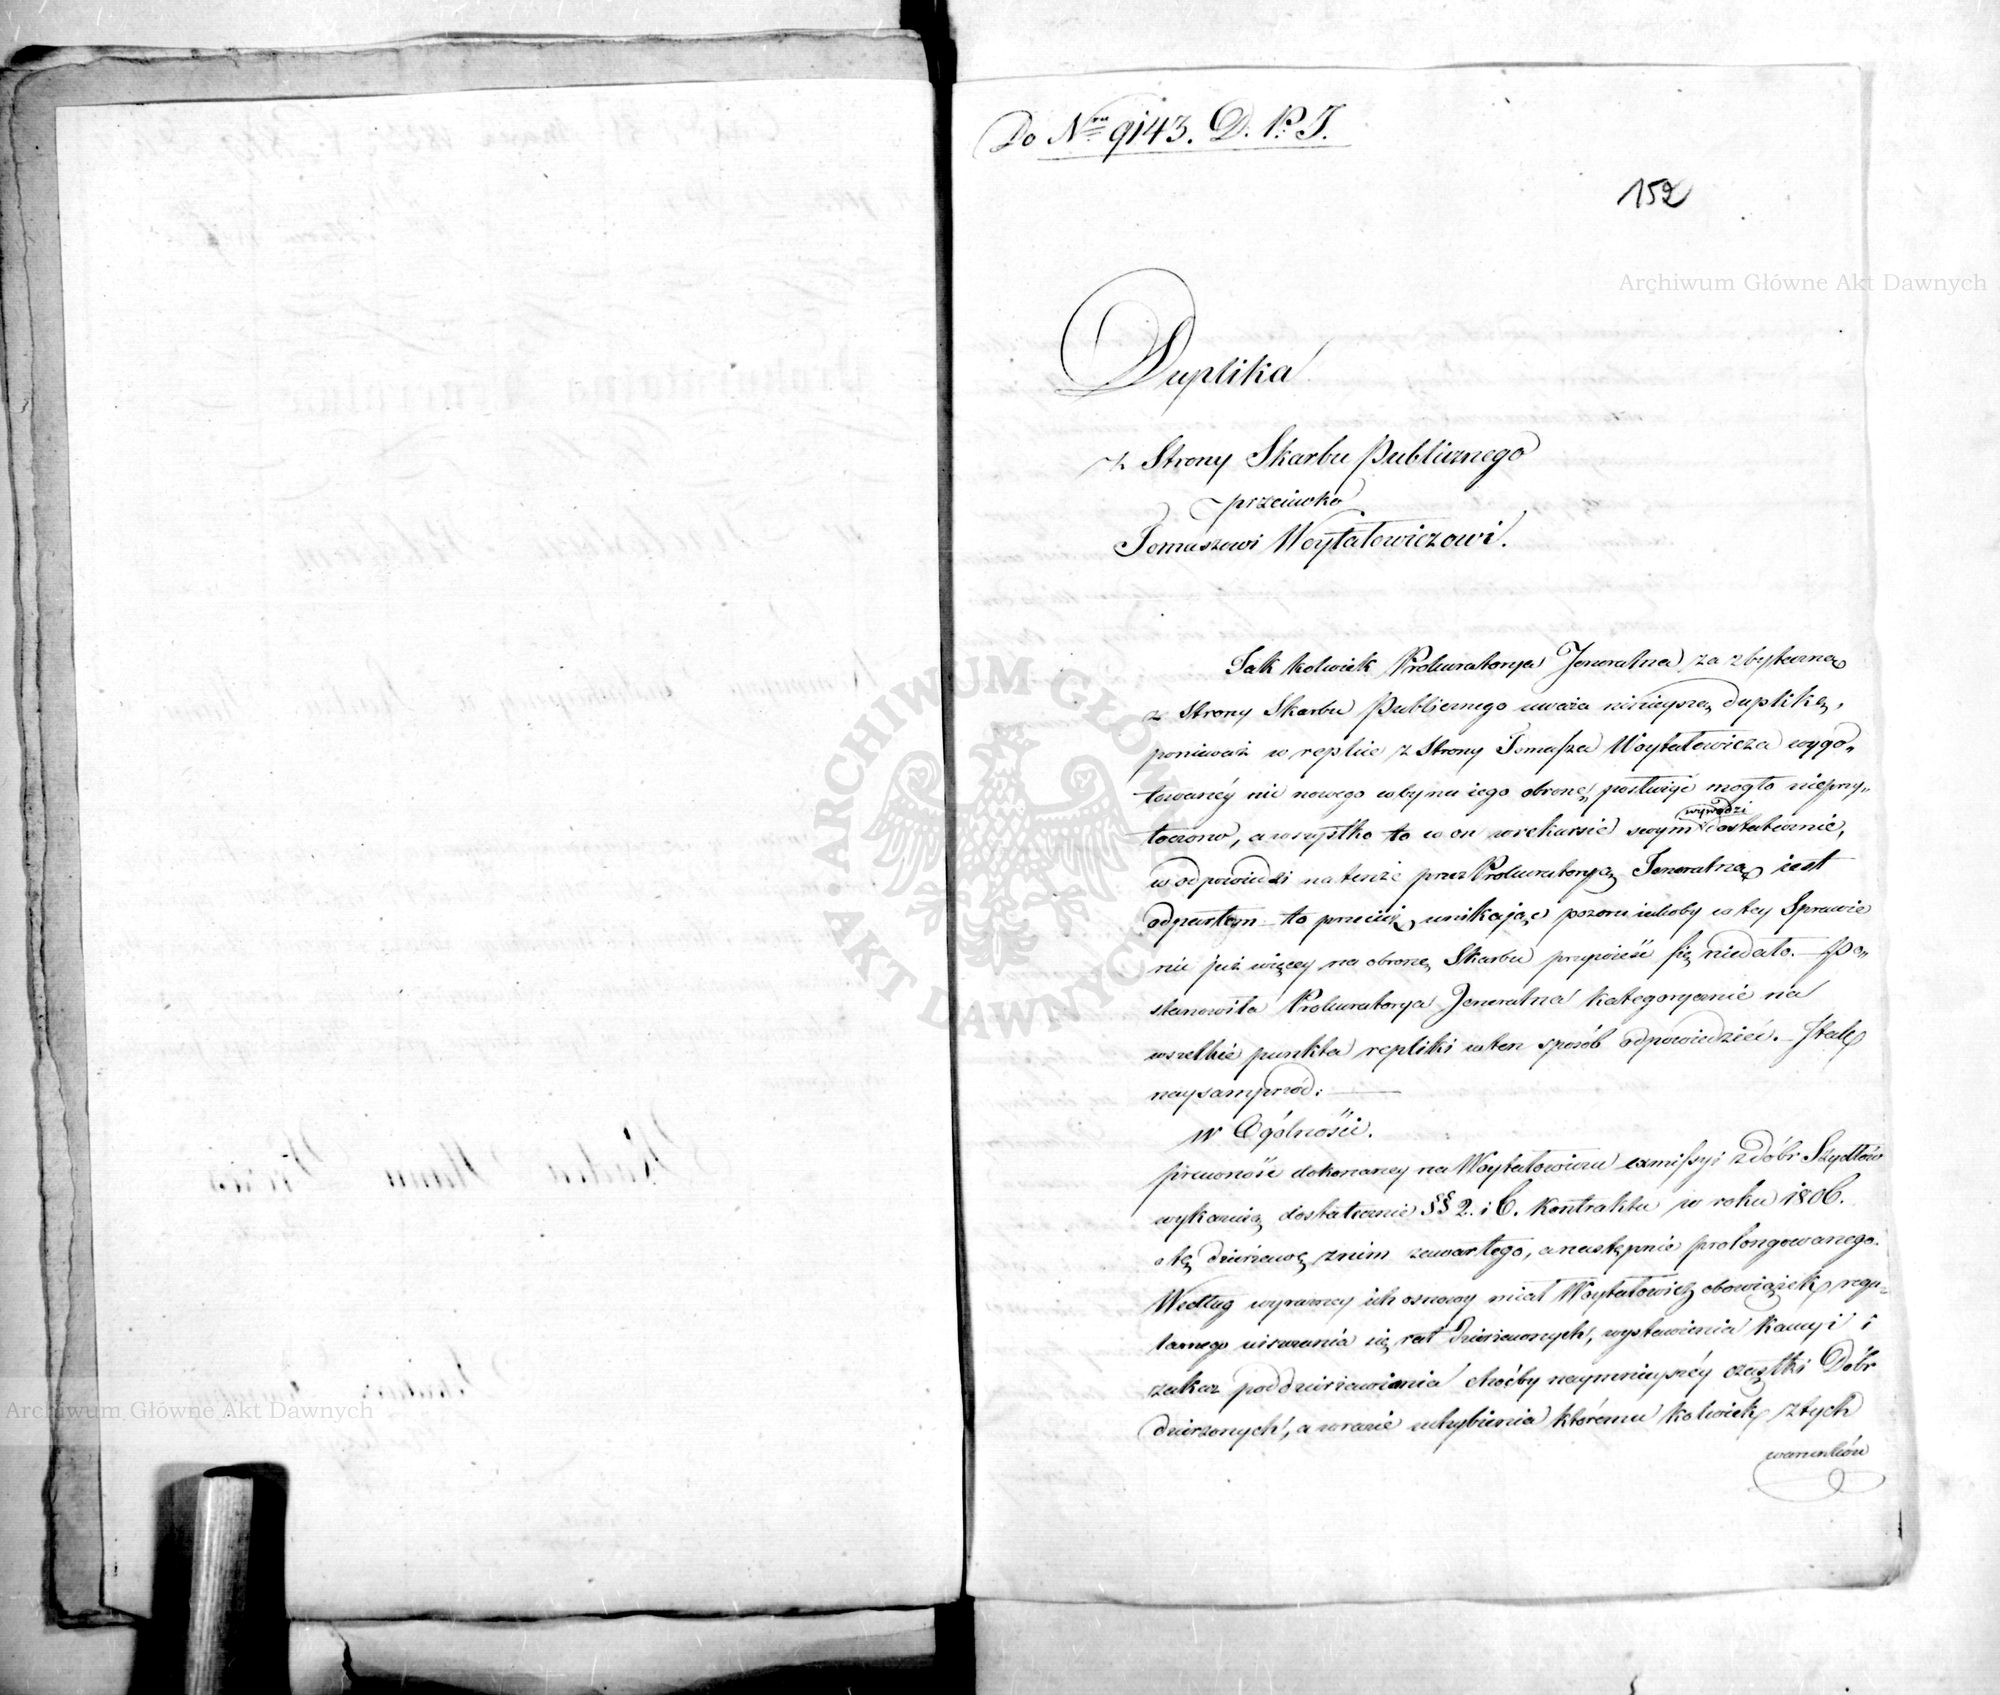 Do Nru 9143. D. P. J.
152
Duplika
z Strony Skarbu Publicznego
przeciwko
Tomaszowi Woytatowiczowi.
Jak kolwiek Prokuratorya Jeneralna za zbyteczną
z strony Skarbu Publicznego uważa ninieyszą duplikę,
ponieważ w replice z Strony Tomasza Woytatowicza wygo„
towaney nic nowego coby na iego obronę posłużyć mogło nieprzy„
toczono, a wszystko to co on w rekursie swym wywodzi dostatecznie,
w odpowiedzi na tenże przez Prokuratoryą Jeneralną iest
odpartem to przecież unikając pozoru iakoby w tey Sprawie
nic już więcey na obronę Skarbu przywieść się niedało. – Po„
stanowiła Prokuratorya Jeneralna kategorycznie na
wszelkie punkta repliki w ten sposób odpowiedzieć. – I tak
naysamprzód:
W Ogólności.
prawność dokonaney na Woytatowiczu exmissyi z dóbr Szydłów
wykazuią dostatecznie §§ 2. i 6. kontraktu w roku 1806.
o tę dzierżawę z nim zawartego, a następnie prolongowanego.
Według wyrazney ich osnowy miał Woytatowicz obowiązek regu„
larnego uiszczania się rat dzierżawnych, wystawienia kaucyi i
zakaz poddzierżawienia choćby naymnieyszéy cząstki Dóbr
dzierżonych, a w razie uchybienia któremu kolwiek z tych
warunków
Archiwum Główne Akt Dawnych
Archiwum Główne Akt Dawnych
ARCHIWUM GŁÓWNE AKT DAWNYCH